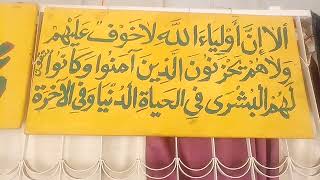 ألا إن أولياء الله لا خوف عليهم
ولا هم يحزنون الذين آمنوا وكانوا
لهم البشرى في الحياة الدنيا وفي الآخرة